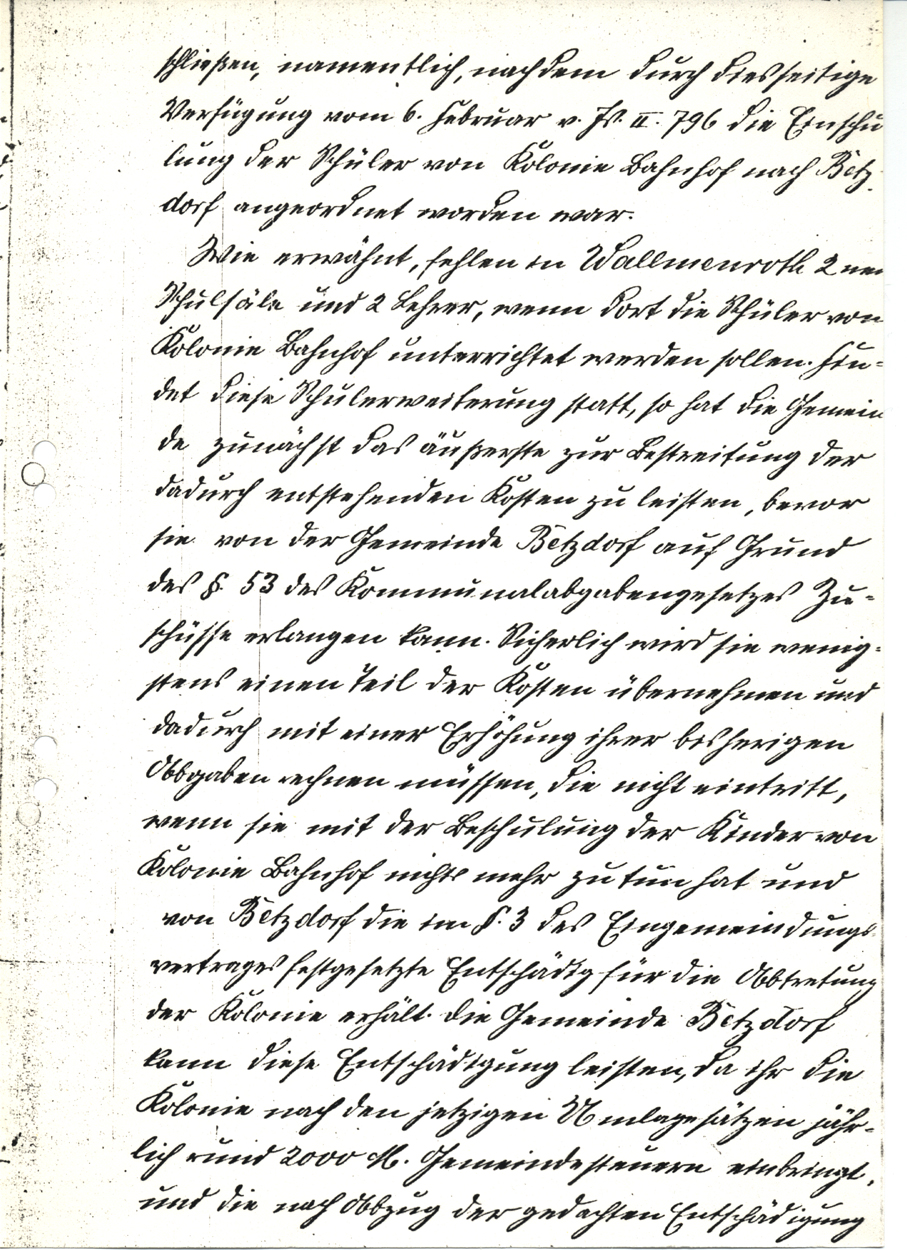 schließen, namentlich, nachdem durch diesseitige
Verfügung vom 6. Februar v. Js. II. 796 die Einschu
lung der Schüler von Kolonie Bahnhof nach Betz-
dorf angeordnet worden war.
Wie erwähnt, fehlen in Wallmenroth 2 neue
Schulsäle und 2 Lehrer, wenn dort die Schüler von
Kolonie Bahnhof unterrichtet werden sollen. Fin-
det diese Schulerweiterung statt, so hat die Gemein
de zunächst das äußerste zur Bestreitung der
dadurch entstehenden Kosten zu leisten, bevor
sie von der Gemeinde Betzdorf auf Grund
des §. 53 des Kommunalabgabengesetzes Zu-
schüsse erlangen kann. Sicherlich wird sie wenig-
stens einen Teil der Kosten übernehmen und
dadurch mit einer Erhöhung ihrer bisherigen
Abgaben rechnen müssen, die nicht eintritt,
wenn sie mit der Beschulung der Kinder von
Kolonie Bahnhof nichts mehr zu tun hat und
von Betzdorf die im §. 3 des Eingemeindungs-
vertrages festgesetzte Entschädig für die Abtretung
der Kolonie erhält. Die Gemeinde Betzdorf
kann diese Entschädigung leisten, da ihr die
Kolonie nach den jetzigen Umlagesätzen jähr-
lich rund 2000 M. Gemeindesteuern einbringt,
und die nach Abzug der gedachten Entschädigung